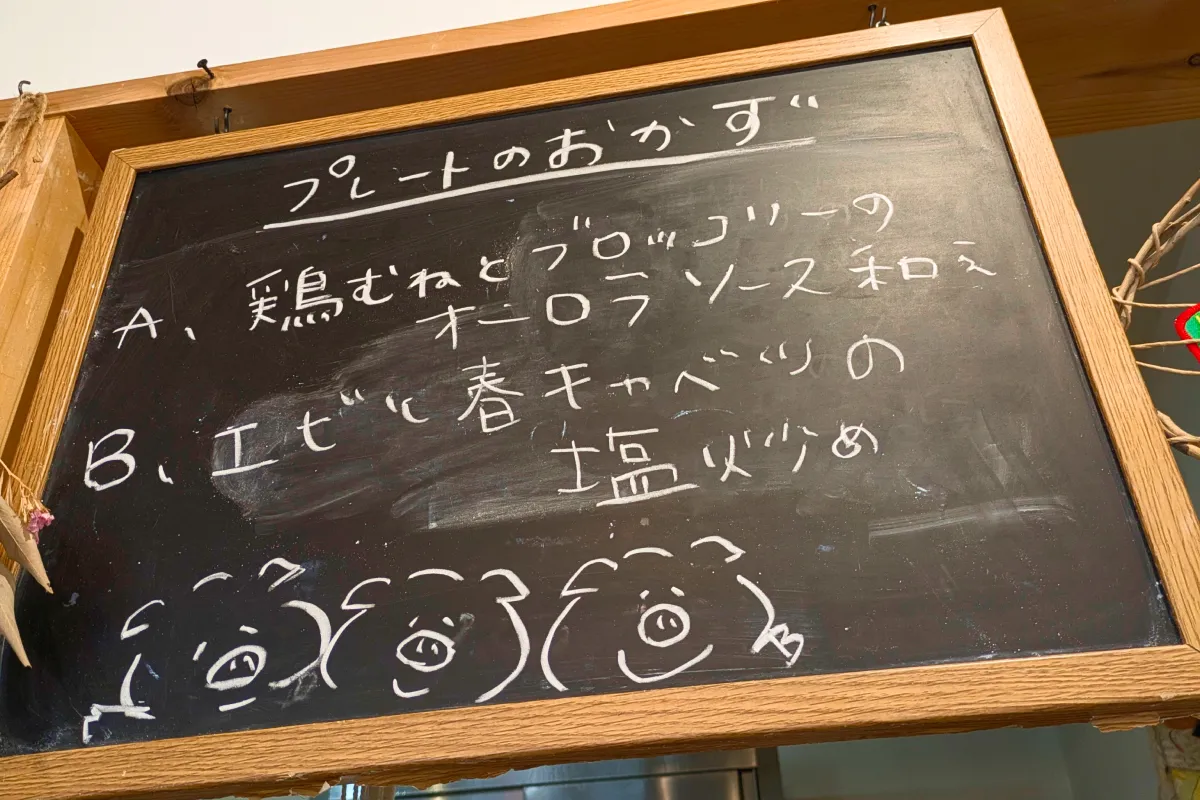 プレートのおかず
A、鶏むねとブロッコリーの
オーロラソース和え
B、エビと春キャベツの
塩炒め